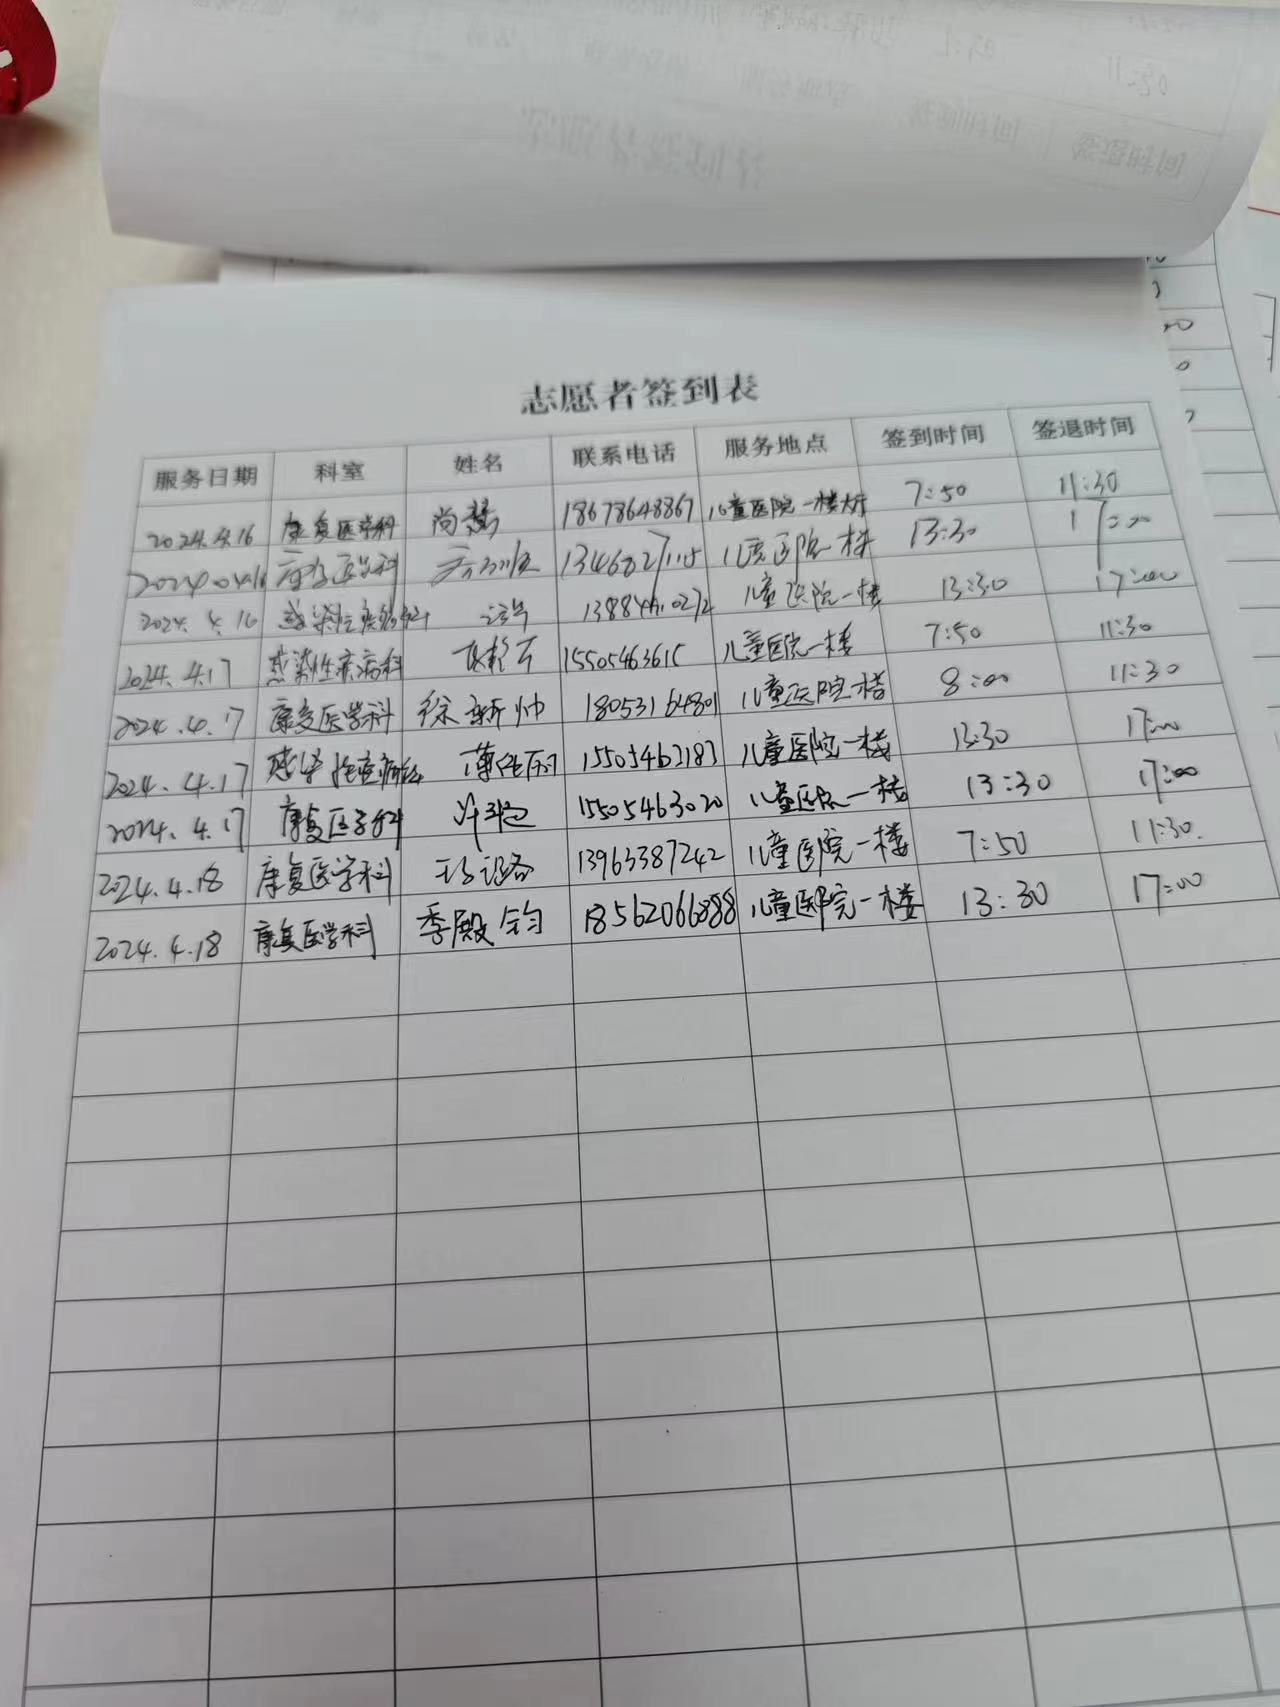 志愿者签到表
服务日期 科室 姓名 联系电话 服务地点 签到时间 签退时间
2024.4.16 康复医学科 尚慧 18678648867 儿童医院一楼大厅 7:50 11:30
2024.04.16 康复医学科 儿童医院一楼 13:30 17:00
2024.4.16 感染性疾病科 儿童医院一楼 13:30 17:00
2024.4.17 感染性疾病科 15505463615 儿童医院一楼 7:50 11:30
2024.4.17 康复医学科 徐新帅 18053164801 儿童医院一楼 8:00 11:30
2024.4.17 感染性疾病科 儿童医院一楼 13:30 17:00
2024.4.17 康复医学科 15505463020 儿童医院一楼 13:30 17:00
2024.4.18 康复医学科 13963387242 儿童医院一楼 7:50 11:30
2024.4.18 康复医学科 季殿钧 18562066888 儿童医院一楼 13:30 17:00